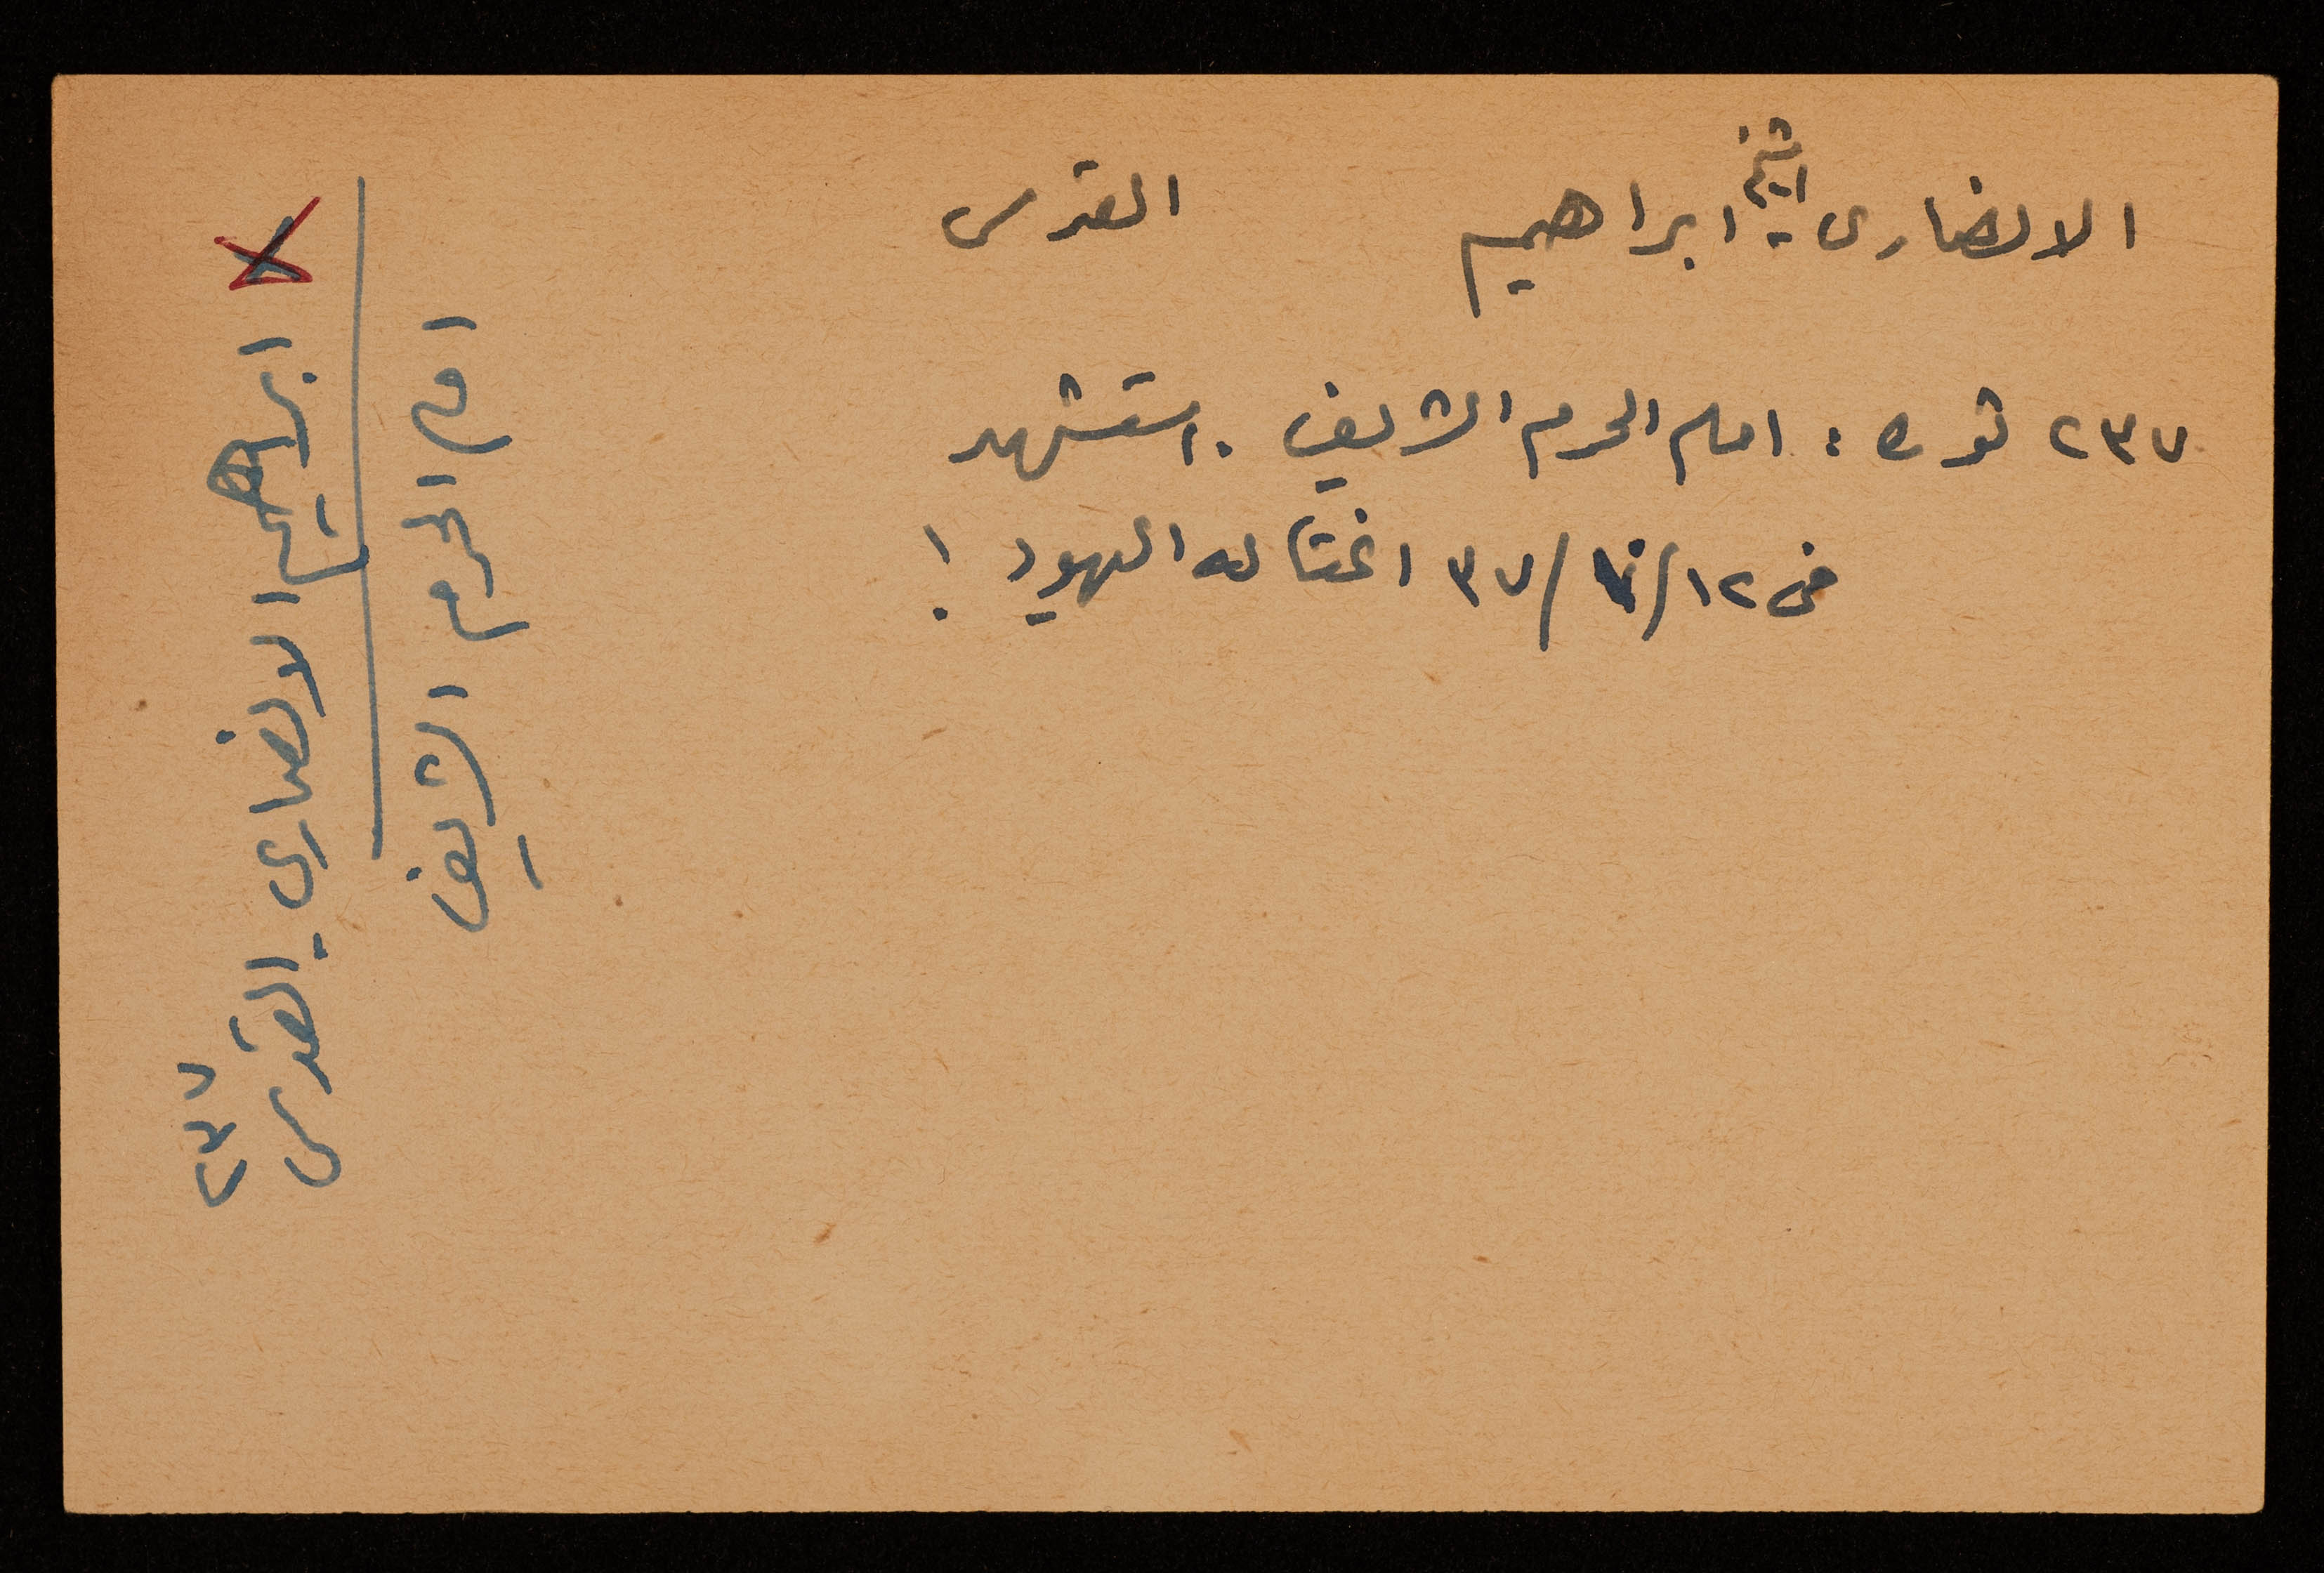 الانصارى - الشيخ ابراهيم القدس
٢٣٧ ثوره : امام الحرم الشريف . استشهد
فى ١٢/ /٣٧ اغتاله اليهود !
ابراهيم الانصاري - القدس
٢٣٧
امام الحرم الشريف